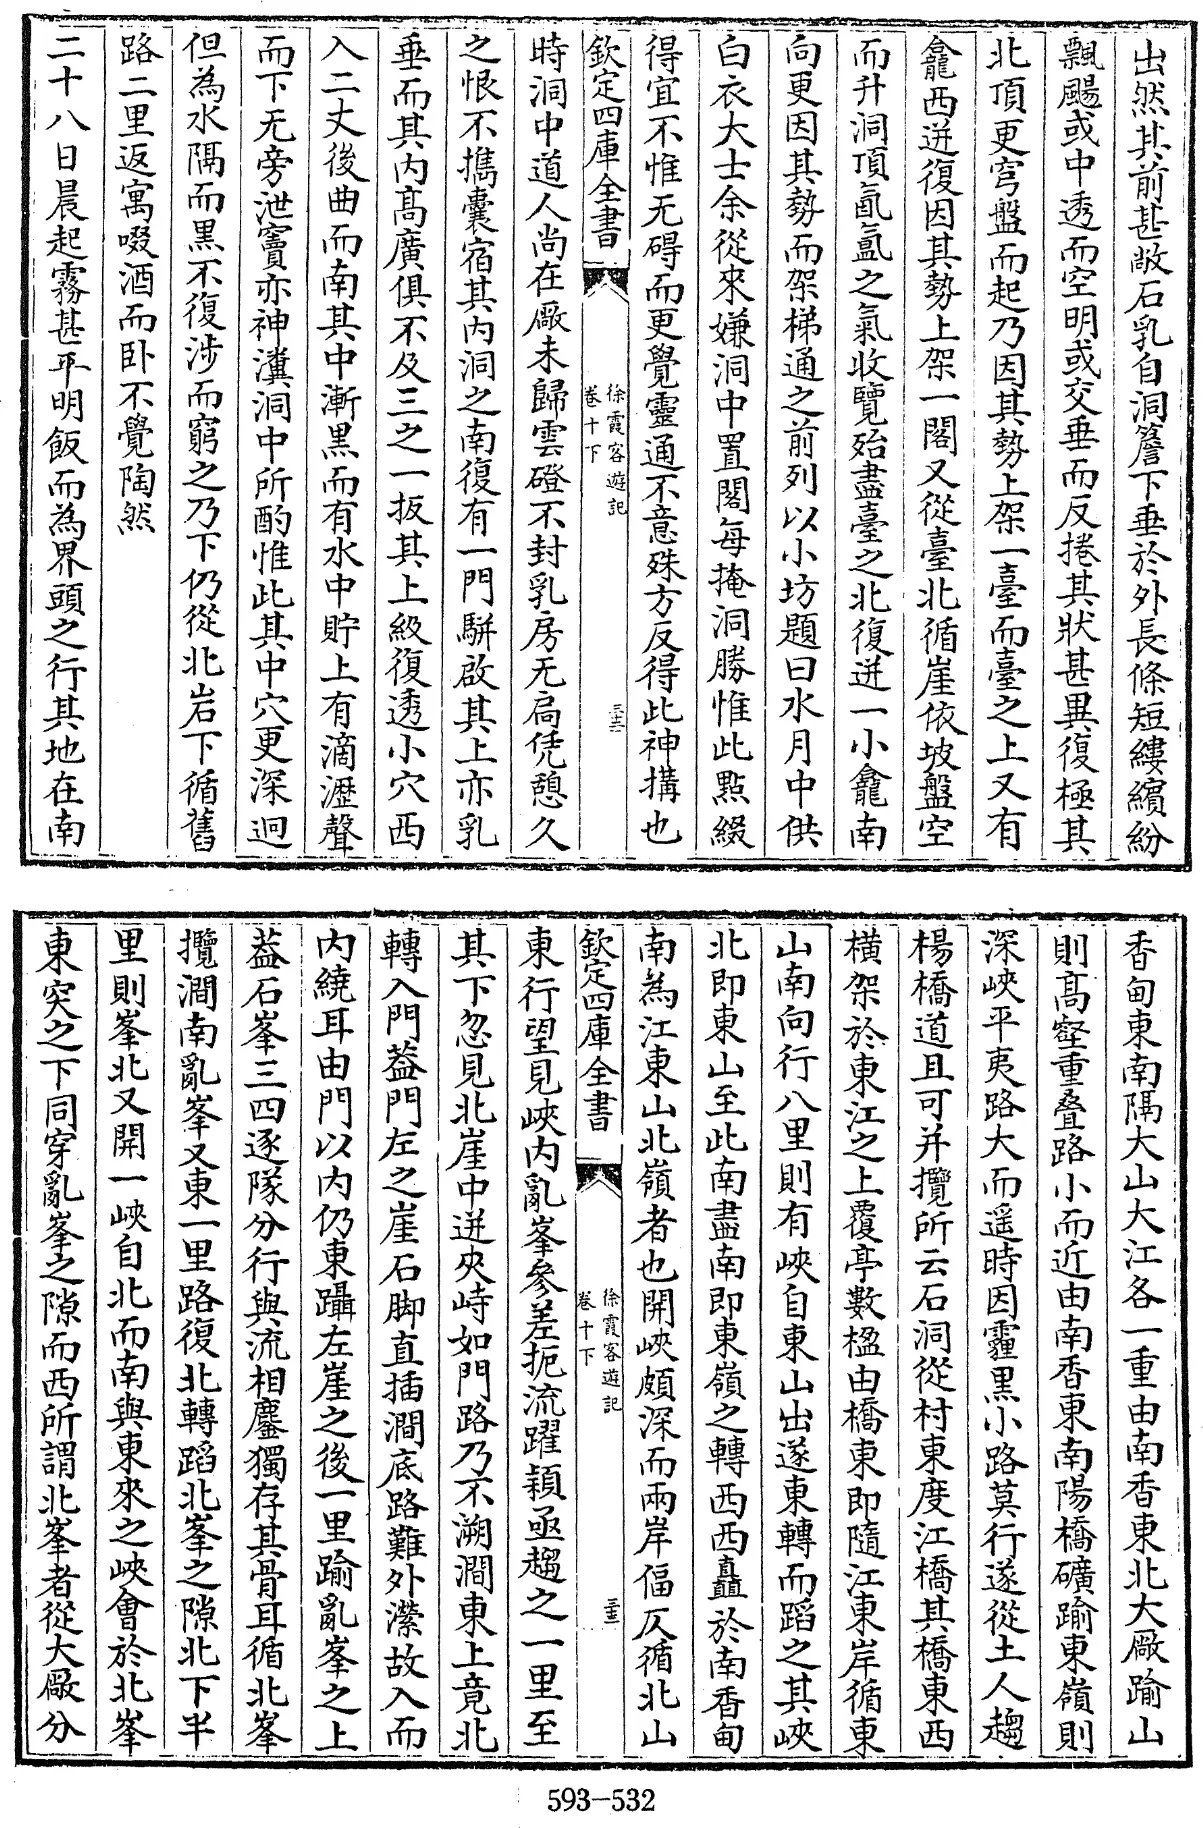 出然其前甚敞石乳自洞簷下垂於外長條短縷繽紛
飄颺或中透而空明或交垂而反捲其狀甚異復極其
北頂更穹盤而起乃因其勢上架一臺而臺之上又有
龕西迸復因其勢上架一閣又從臺北循崖依坡盤空
而升洞頂氤氲之氣收覽殆盡臺之北復迸一小龕南
向更因其勢而架梯通之前列以小坊題曰水月中供
白衣大士余從來嫌洞中置閣每掩洞勝惟此點綴
得宜不惟无碍而更覺靈通不意殊方反得此神搆也
欽定四庫全書
徐霞客遊記
卷十下
三十二
時洞中道人尚在厰未歸雲磴不封乳房无扃凭憩久
之恨不攜囊宿其內洞之南復有一門駢啟其上亦乳
垂而其內高廣俱不及三之一扳其上級復透小穴西
入二丈後曲而南其中漸黑而有水中貯上有滴瀝聲
而下无旁泄竇亦神瀵洞中所酌惟此其中穴更深迥
但為水隔而黑不復涉而窮之乃下仍從北岩下循舊
路二里返寓啜酒而卧不覺陶然
二十八日晨起霧甚平明飯而為界頭之行其地在南
香甸東南隔大山大江各一重由南香東北大厰踰山
則高壑重叠路小而近由南香東南陽橋礦踰東嶺則
深峽平夷路大而遥時因霾黒小路莫行遂從土人趨
楊橋道且可并攬所云石洞從村東度江橋其橋東西
橫架於東江之上覆亭數楹由橋東即隨江東岸循東
山南向行八里則有峽自東山出遂東轉而蹈之其峽
北即東山至此南盡南即東嶺之轉西西矗於南香甸
南為江東山北嶺者也開峽頗深而兩岸偪仄循北山
欽定四庫全書
徐霞客遊記
卷十下
三十三
東行望見峽內亂峯參差扼流躍穎亟趨之一里至
其下忽見北崖中迸夾峙如門路乃不溯澗東上竟北
轉入門葢門左之崖石脚直插澗底路難外瀠故入而
內繞耳由門以内仍東躡左崖之後一里踰亂峯之上
葢石峯三四逐隊分行與流相鏖獨存其骨耳循北峯
攬澗南亂峯又東一里路復北轉蹈北峯之隙北下半
里則峯北又開一峽自北而南與東來之峽會於北峯
東突之下同穿亂峯之隙而西所謂北峯者從大厰分
593-532